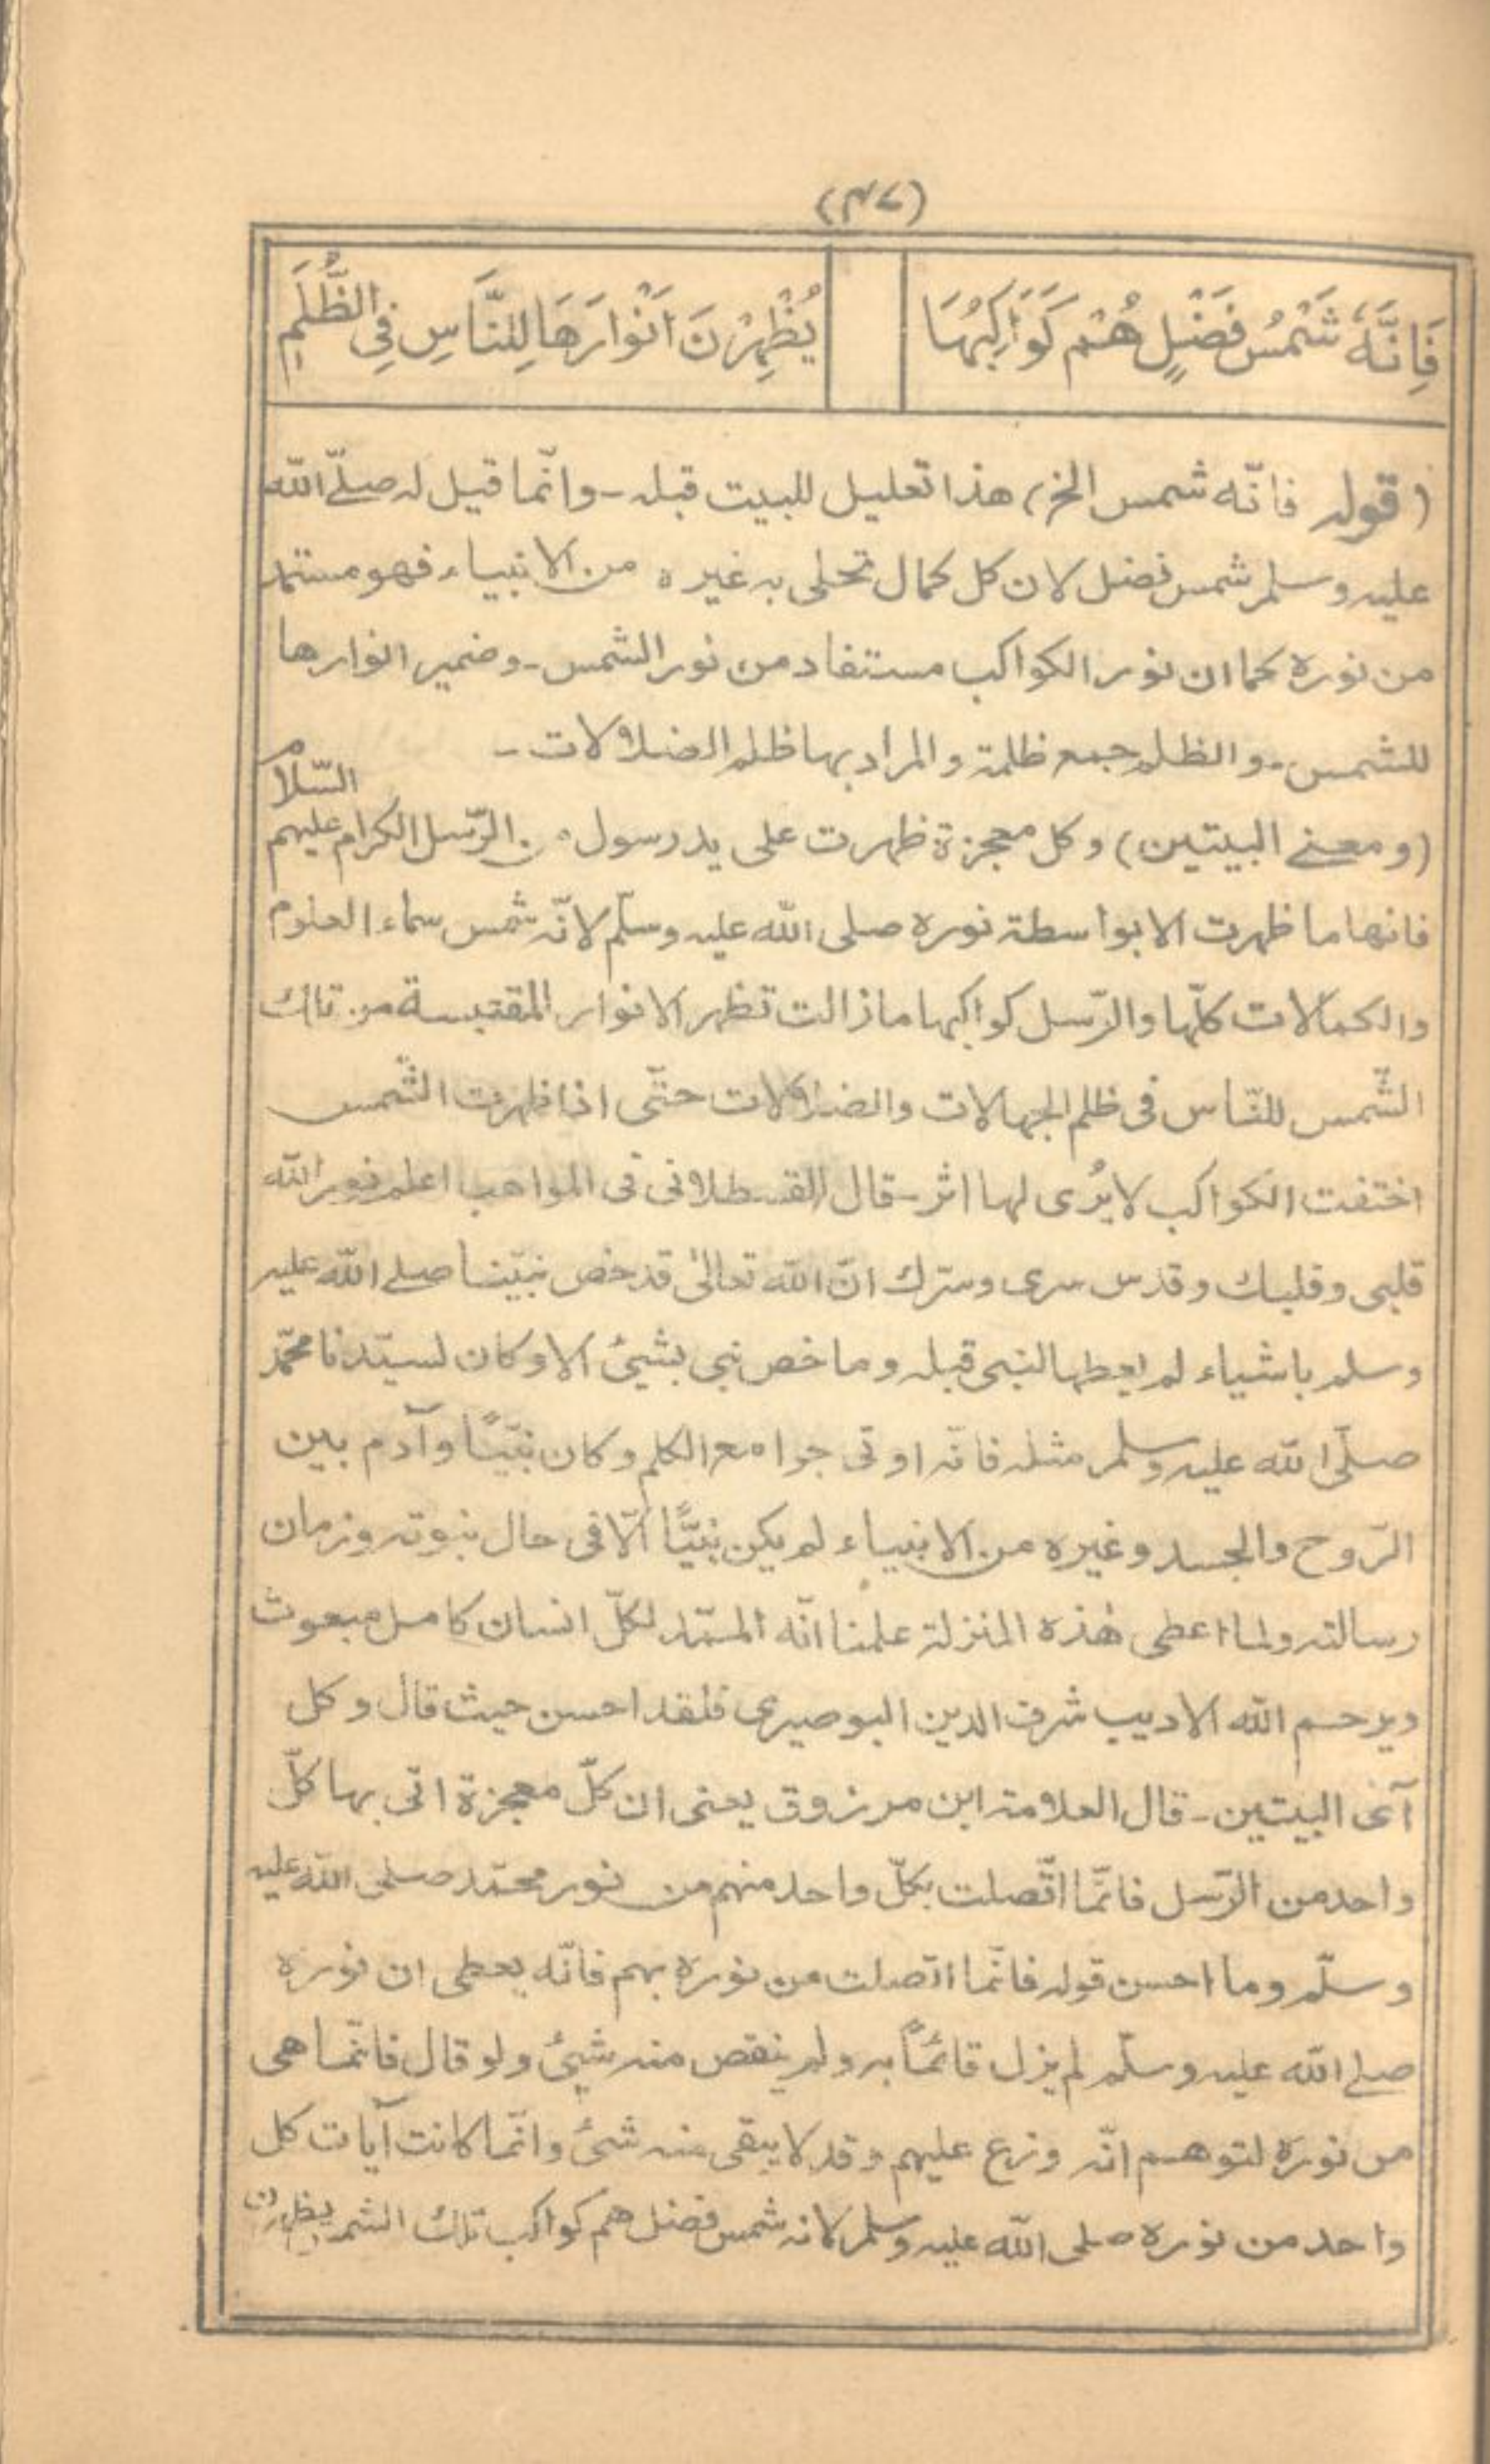 (۴۷)
فَاِنَّهٗ شَمْسُ فَضْلٍ هُمْ كَوَاكِبُهَا يُظْهِرْنَ اَنْوَارَهَا لِلنَّاسِ فِى الظُّلَمِ
(قوله فانّه شمس الخ) هذا تعليل للبيت قبله ـ وانّما قيل له صلّے الله
عليه وسلم شمس فضل لان كل كمال تحلى به غيره من الانبياء فهو مستمد
من نوره كما ان نور الكواكب مستفاد من نور الشمس ـ وضمير انوارها
للشمس ـ والظلم جمع ظلمة والمراد بها ظلم الضلالات ـ
(ومعنے البيتين) وكل معجزة ظهرت على يد رسول من الرّسل الكرام عليهم السّلام
فانها ما ظهرت الا بواسطة نوره صلى الله عليه وسلّم لانّه شمس سماء العلوم
والكمالات كلّها والرّسل كواكبها ما زالت تظهر الانوار المقتبسة من تلك
الشّمس للنّاس فى ظلم الجهالات والضلالات حتّى اذا ظهرت الشّمس
اختفت الكواكب لا يُرى لها اثر ـ قال القسطلانى فى المواهب اعلم نور الله
قلبى وقلبك وقدس سرى وسّرك انّ الله تعالىٰ قد خص نبيّنا صلے الله عليه
وسلم باشياء لم يعطها لنبى قبله وما خص نبى بشيئ الا وكان لسيّدنا محمّد
صلّى الله عليه وسلم مثله فانّه اوتى جوامع الكلم وكان نبيّاً وآدم بين
الرّوح والجسد وغيره من الانبياء لم يكن نبيًّا الّا فى حال نبوته وزمان
رسالته ولما اعطى هٰذه المنزلة علمنا انّه الممّد لكلّ انسان كامل مبعوث
ويرحم الله الاديب شرف الدين البوصيرى فلقد احسن حيث قال وكل
آى البيتين ـ قال العلامة ابن مرزوق يعنى ان كلّ معجزة اتى بها كلّ
واحد من الرّسل فانّما اتّصلت بكلّ واحد منهم من نور محمّد صلى الله عليه
وسلّم وما احسن قوله فانّما اتصلت من نوره بهم فانّه يعطى ان نوره
صلے الله عليه وسلّم لم يزل قائمًا به ولم ينقص منه شيئ ولو قال فانّما هى
من نوره لتوهم انّه وزع عليهم وقد لا يبقى منه شئ وانّما كانت آيات كل
واحد من نوره صلى الله عليه وسلم لانه شمس فضل هم كواكب تلك الشمس يظهرن